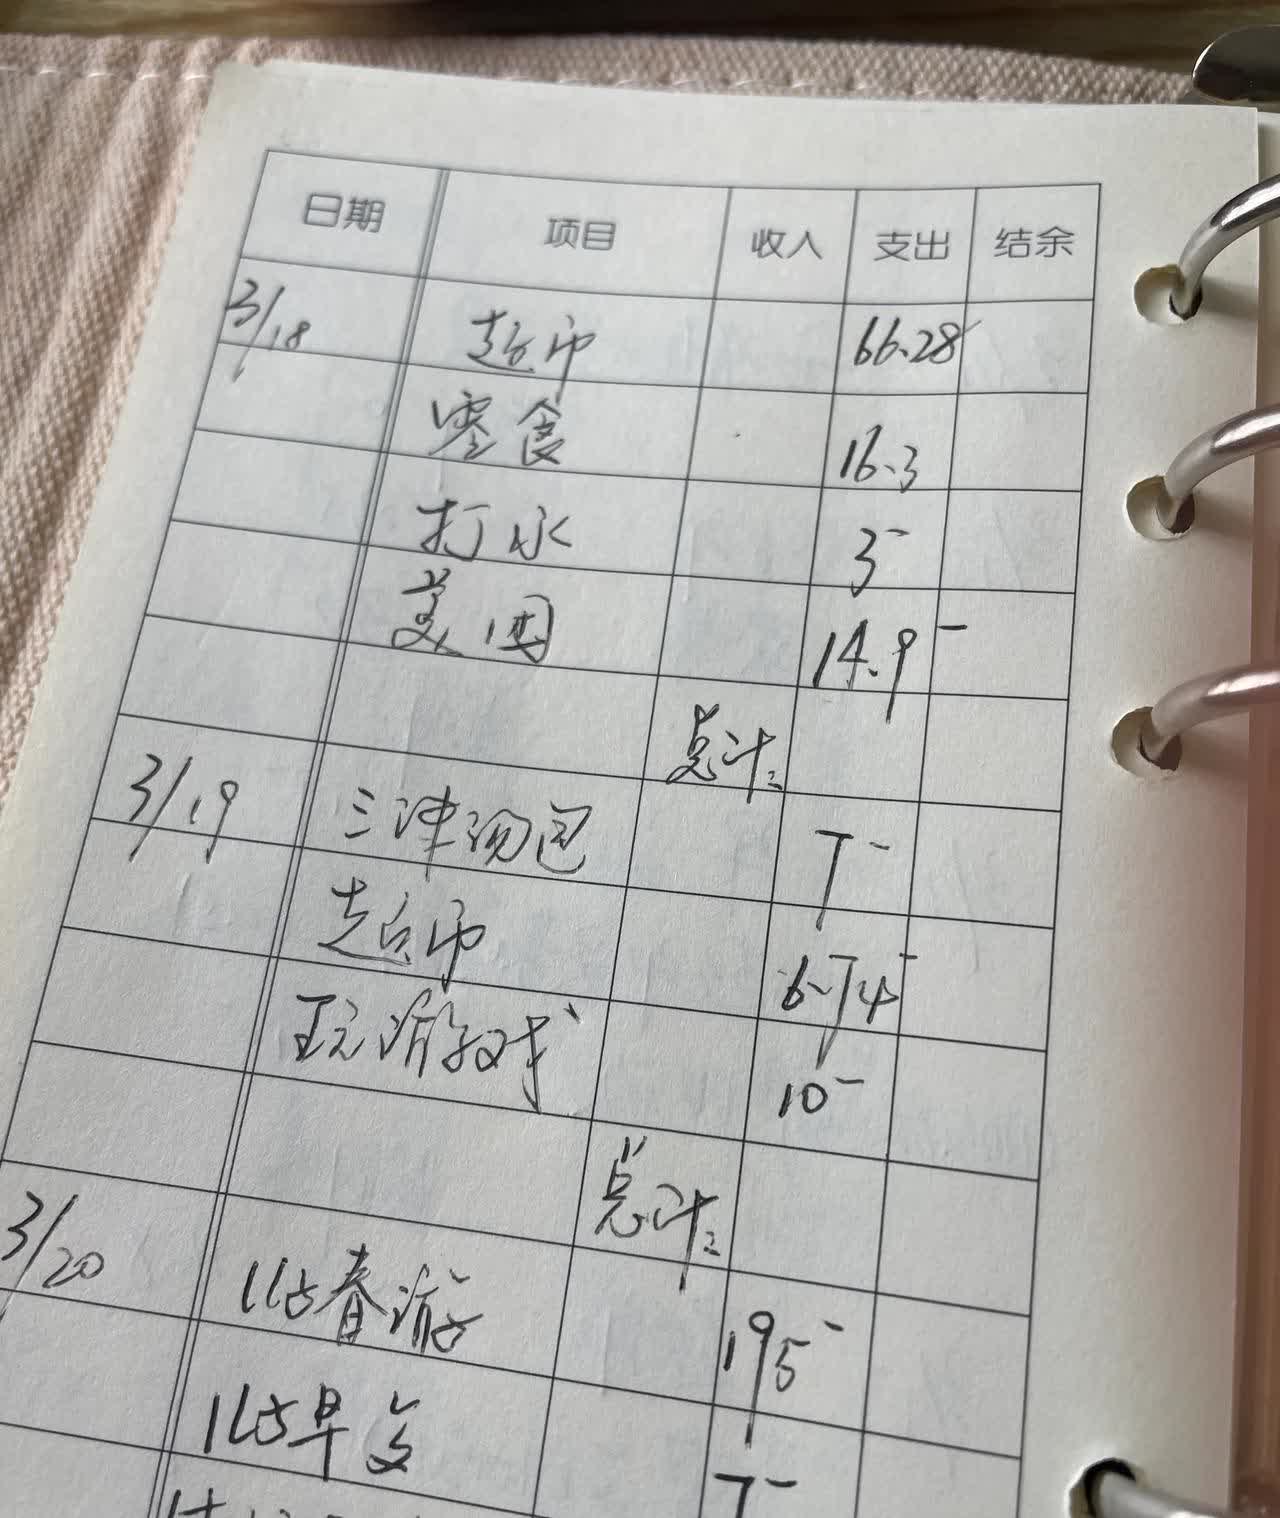 日期 项目 收入 支出 结余
3/18 超市 66.28
零食 16.3
打水 3-
美团 14.9-
总计:
3/19 三津汤包 7-
超市 6.74-
玩游戏 10-
总计:
3/20 春游 195-
早 7-